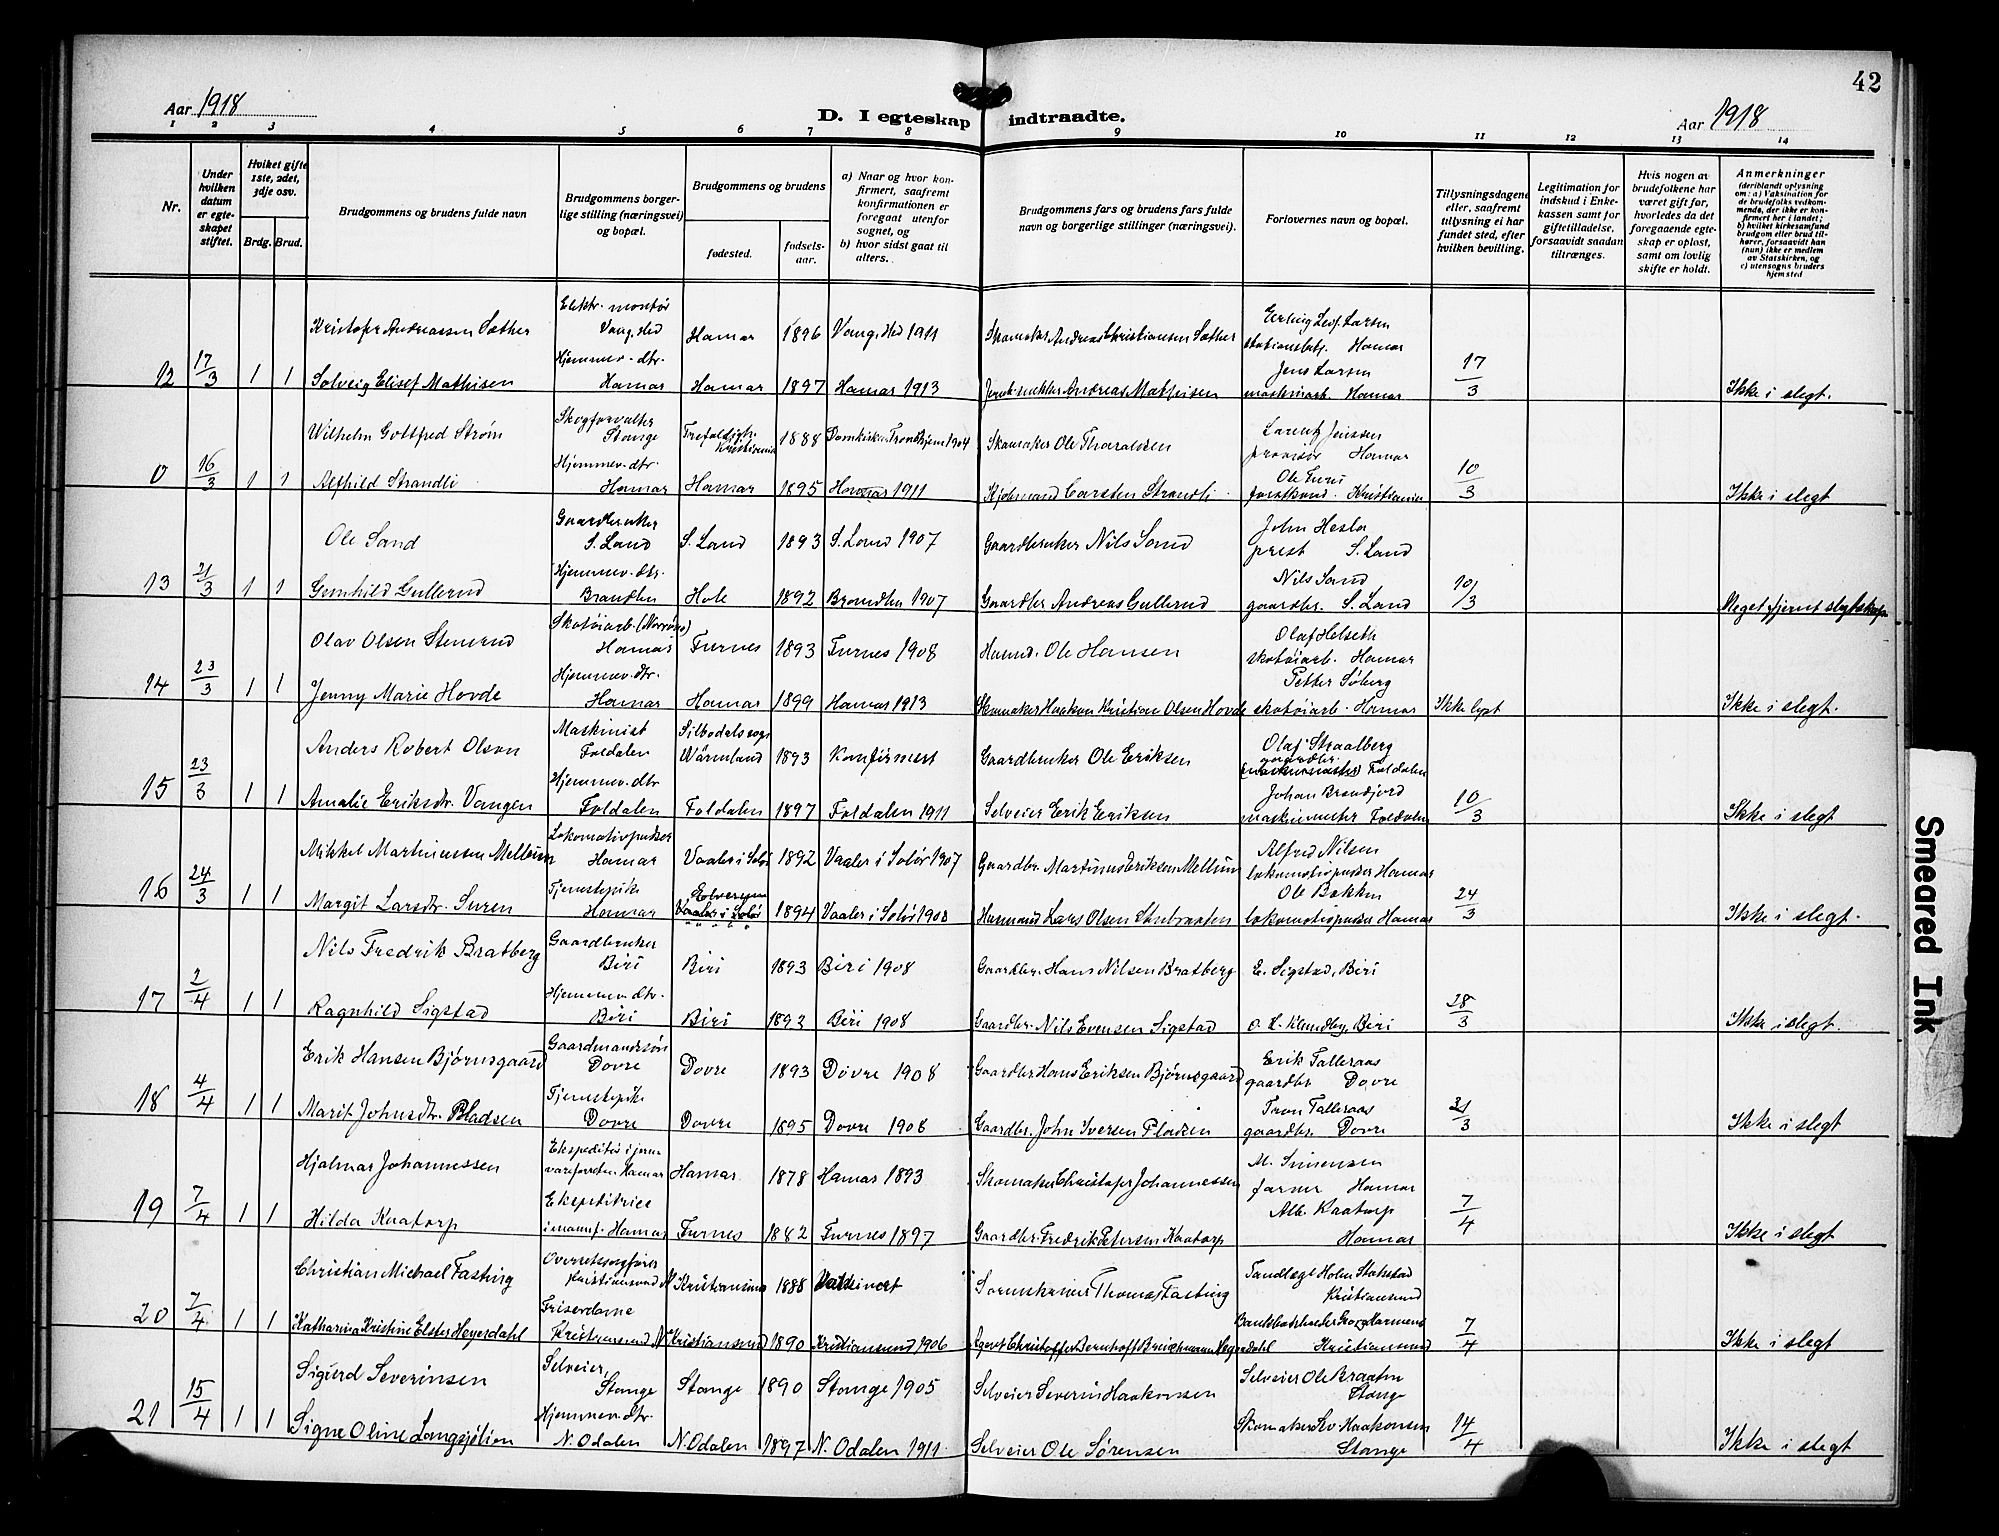 42
Aar 1918
D. I egteskap indtraadte.
Aar 1918
1 2 3 4 5 6 7 8 9 10 11 12 13 14
Nr.
Under hvilken datum er egteskapet stiftet.
Hvilket gifte 1ste, 2det, 3dje osv.
Brdg. Brud.
Brudgommens og brudens fulde navn
Brudgommens borgerlige stilling (næringsvei) og bopæl.
Brudgommens og brudens
fødested.
fødselsaar.
a) Naar og hvor konfirmert, saafremt konfirmationen er foregaat utenfor sognet, og
b) hvor sidst gaat til alters.
Brudgommens fars og brudens fars fulde navn og borgerlige stillinger (næringsvei).
Forlovernes navn og bopæl.
Tillysningsdagene eller, saafremt tillysning ei har fundet sted, efter hvilken bevilling.
Legitimation for indskud i Enkekassen samt for giftetilladelse, forsaavidt saadan tiltrænges.
Hvis nogen av brudefolkene har været gift før, hvorledes da det foregaaende egteskap er opløst, samt om lovlig skifte er holdt.
Anmerkninger
(deriblandt oplysning om: a) Vaksination for de brudefolks vedkommende, der ikke er konfirmert her i landet; b) hvilket kirkesamfund brudgom eller brud tilhører, forsaavidt han (hun) ikke er medlem av Statskirken, og c) utensogns bruders hjemsted
Kristofer Andreassen Sæther Elektr. montør Vang, Hed Hamar 1896 Vang, Hed 1911 Skomaker Andreas Christiansen Sæther Erling Leof. Larsen stationsbetj. Hamar
12 17/3 1 1 Solveig Elisef Mathisen Hjemmev. dtr. Hamar Hamar 1897 Hamar 1913 Andreas Mathisen Jens Larsen maskinarb. Hamar 17/3 Ikke i slegt.
Wilhelm Gottfred Strøm Skogforvalter Stange Trefoldigh. Kristiania 1888 Domkirken Trondhjem 1904 Skomaker Ole Tharaldsen Lorentz Jenssen provisor Hamar
0 16/3 1 1 Alfhild Strandli Hjemmev. dtr. Hamar Hamar 1895 Hamar 1911 Kjøbmand Carsten Strandli Ole forstkand. Kristiania 10/3 Ikke i slegt
Ole Sand Gaardbruker S. Land S. Land 1893 S. Land 1907 Gaardbruker Nils Sand John Hesla prest S. Land
13 21/3 1 1 Gunhild Gullerud Hjemmev. dtr. Brandbu Hole 1892 Brandbu 1907 Gaardbr. Andreas Gullerud Nils Sand gaardbr. S. Land 10/3 Meget fjernt slegtskap
Olav Olsen Stenerud Skotøiarb. Hamar Furnes 1893 Furnes 1908 Husmd. Ole Hansen Olaf Helseth skotøiarb. Hamar
14 23/3 1 1 Jenny Marie Hovde Hjemmev. dtr. Hamar Hamar 1899 Hamar 1913 Skomaker Haakon Kristian Olsen Hovde Petter Søberg skotøiarb. Hamar Ikke lyst Ikke i slegt.
Anders Robert Olson Maskinist Foldalen Silbodals sogn Wärmland 1893 Konfirmert Gaardbruker Ole Eriksen Olaf Straalberg gaardbr. Foldalen
15 23/3 1 1 Amalie Eriksdtr. Vangen Hjemmev. dtr. Foldalen Foldalen 1897 Foldalen 1911 Selveier Erik Eriksen Johan Brendjord Foldalen 10/3 Ikke i slegt
Mikkel Martinussen Mellum Lokomotivpudser Hamar Vaaler i Solør 1892 Vaaler i Solør 1907 Gaardbr. Martinus Eriksen Mellum Alfred Nilsen lokomotivpudser Hamar
16 24/3 1 1 Margit Larsdtr. Suren Tjenestepike Hamar Elverum Vaaler i Solør 1894 Vaaler i Solør 1908 Husmand Lars Olsen Ole Bakken lokomotivpudser Hamar 24/3 Ikke i slegt.
Nils Fredrik Bratberg Gaardbruker Biri Biri 1893 Biri 1908 Gaardbr. Hans Nilsen Bratberg E. Sigstad, Biri
17 2/4 1 1 Ragnhild Sigstad Hjemmev. dtr. Biri Biri 1893 Biri 1908 Gaardbr. Nils Evensen Sigstad O. H. Klundby, Biri 28/3 Ikke i slegt.
Erik Hansen Bjørnsgaard Gaardmandssøn Dovre Dovre 1893 Dovre 1908 Gaardbr Hans Eriksen Bjørnsgaard Erik Talleraas gaardbr Dovre
18 4/4 1 1 Marit Johnsdtr. Pladsen Tjenestepike Dovre Dovre 1895 Dovre 1908 Gaardbr. John Iversen Pladsen Talleraas gaardbr. Dovre 31/3 Ikke i slegt
Hjalmar Johannessen Ekspeditør i jernvareforretn. Hamar Hamar 1878 Hamar 1893 Skomaker Christofer Johannessen M. Simensen Hamar
19 7/4 1 1 Hilda Kaatorp Ekspeditrice i manuf. Hamar Furnes 1882 Furnes 1897 Gaardbr. Fredrik Petersen Kaatorp Alb. Kaatorp Hamar 7/4 Ikke i slegt
Christian Michael Fasting Overretssagfører Kristiansund N Kristiansund 1888 Vaksinert Sorenskriver Thomas Fasting Tandlæge Holm Kristiansund
20 7/4 1 1 Katharina Kristine Elster Heyerdahl Friserdame Kristiansund N Kristiansund 1890 Kristiansund 1906 Agent Christoffer Bernhoft Heyerdahl Kristiansund 7/4 Ikke i slegt
Sigurd Severinsen Selveier Stange Stange 1890 Stange 1905 Selveier Severin Haakonsen Selveier Ole Braaten Stange
21 15/4 1 1 Signe Oline Langsjølien Hjemmev. dtr. N. Odalen N. Odalen 1897 N. Odalen 1911 Selveier Ole Sørensen Skomaker Haakonsen Stange 14/4 Ikke i slegt
Smeared Ink